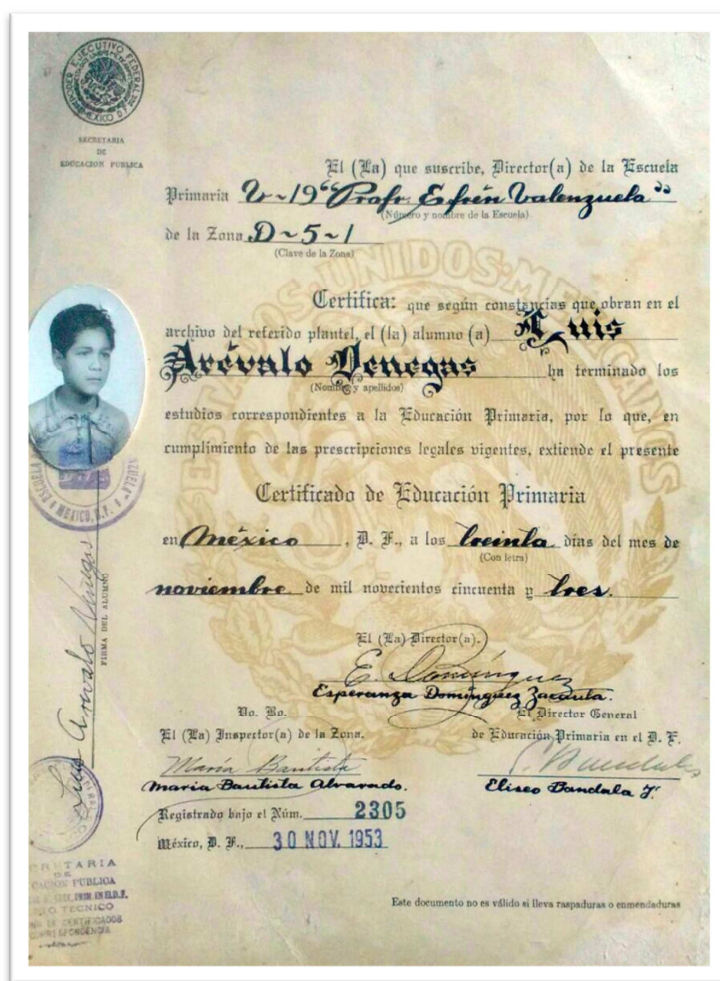 PODER EJECUTIVO FEDERAL
MEXICO D.F.
SECRETARIA
DE
EDUCACION PUBLICA
El (La) que suscribe, Director(a) de la Escuela
Primaria V-19 "Profr. Efrén Valenzuela"
(Número y nombre de la Escuela)
de la Zona D-5-1
(Clave de la Zona)
ESTADOS UNIDOS MEXICANOS
Certifica: que según constancias que obran en el
archivo del referido plantel, el (la) alumno (a) Luis
Arévalo Venegas ha terminado los
(Nombre y apellidos)
estudios correspondientes a la Educación Primaria, por lo que, en
cumplimiento de las prescripciones legales vigentes, extiende el presente
Certificado de Educación Primaria
en México, D. F., a los treinta días del mes de
(Con letra)
noviembre de mil novecientos cincuenta y tres.
El (La) Director(a).
E. Domínguez
Esperanza Domínguez
Vo. Bo.
El (La) Inspector(a) de la Zona.
María Bautista
María Bautista Alvarado.
El Director General
de Educación Primaria en el D. F.
Eliseo Bandala
Registrado bajo el Núm. 2305
México, D. F., 30 NOV. 1953
Este documento no es válido si lleva raspaduras o enmendaduras
ESCUELA
MEXICO, D.F.
Luis Arevalo Venegas
FIRMA DEL ALUMNO
PUBLICA
PRIM. EN EL D.F.
TECNICO
DE CERTIFICADOS
CORRESPONDENCIA